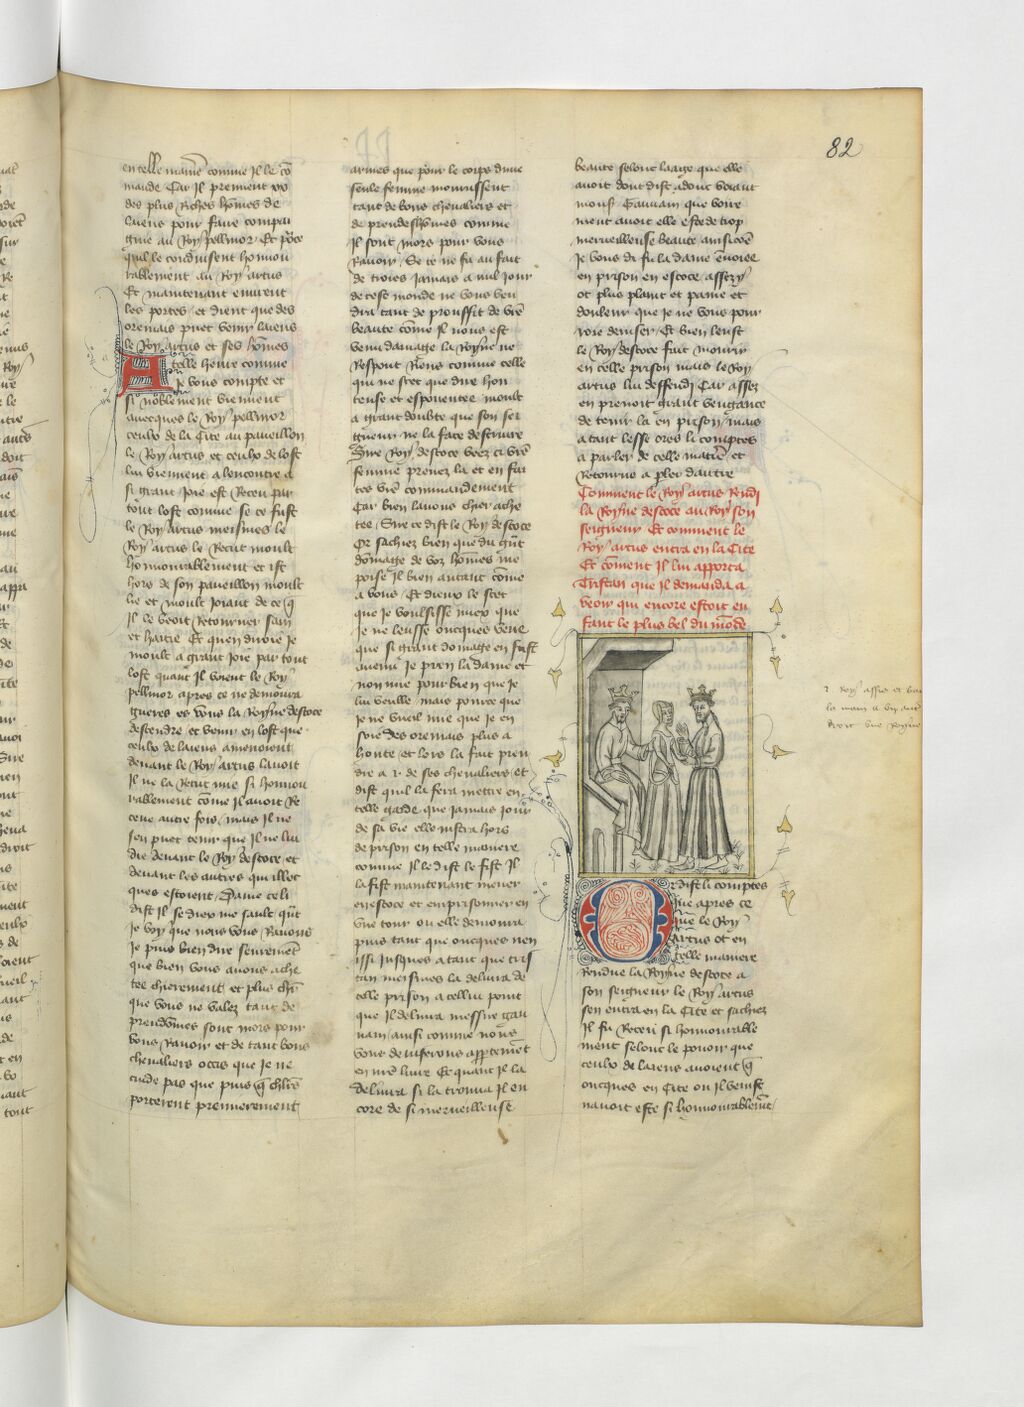 82
en telle maniē comme Il le cō
mande Car Il prennent xx
des plus riches hōmes de
laiens pour faire compai
gnie au Roy pellinor Et pōce
quil le conduisent honnou
rablement au Roy artus
Et maintenant euurent
les portes et dient que des
oremais puet venir laiens
le Roy artus et ses hōmes
A telle heure comme
Je vous compte et
si noblement viennent
auecques le Roy pellinor
ceulx de la Cite au paueillon
le Roy artus et ceulx de lost
lui viennent alencontre a
si grant Joie est Receu par
tout lost comme se ce fust
le Roy artus meismes le
Roy artus le Recut moult
hōnnourablement et ist
hors de son paueillon moult
lie et moult Joiant de ce q̄
Il le veoit Retourner sain
et haitie Et quen diroie Je
moult a grant Joie par tout
lost quant Il voient le Roy
pellinor apres ce ne demoura
gueres es vous la Royne descoce
descendre et venir en lost que
ceulx de laiens amenoient
deuant le Roy artus lauoit
Il ne la Recut mie si honnou
rablement cōme Il auoit Re
ceue autre fois mais Il ne
sen puet tenir que Il ne lui
die deuant le Roy descoce et
deuant les autres qui illec
ques estoient Dame celi
dist Il se diex me sault quāt
Je voy que nous vous Rauons
Je puis bien dire seuremēt
que bien vous auons ache
tee chierement et plus chē
que vous ne valez tant de
preudōmes sont mors pour
vous Rauoir et de tant bons
cheualiers occis que Je ne
cuide pas que puis q̄ chlr̄s
porterent premierement
armes que pour le corps dune
seule femme mourussent
tant de bons cheualiers et
de preudeshōmes comme
Il sont mors pour vous
Rauoir Se ce ne fu au fait
de troies Jamais a nul Jour
de cest monde ne vous ven
dra tant de prouffit de vrē
beaute cōme Il nous est
venu dāmage la Royne ne
Respont Riens comme celle
qui ne scet que dire hon
teuse et espouentee moult
a grant doubte que son sei
gneur ne la face destruire
Sire Roy descoce veez ci vrē
femme prenez la et en fai
tes vrē commandement
Car bien lauons chier ache
tee Sire ce dist le Roy descoce
Or sachiez bien que du grāt
dōmage de voz hōmes me
poise Il bien autant cōme
a vous Et dieux le scet
que Je voulsisse miex que
Je ne leusse oncques veue
que si grant domage en fust
auenu Je pren la dame et
non mie pour bien que Je
lui veulle mais pource que
Je ne vueil mie que Je en
soie des oremais plus a
honte et lors la fait pren
dre a .x. de ses cheualiers et
dist quil la fera mettre en
telle garde que Jamais Jour
de sa vie elle nistra hors
de prison en telle maniere
comme Il le dist le fist Il
la fist maintenant mener
en escoce et emprisonner en
vne tour ou elle demoura
puis tant que oncques nen
issi Jusques a tant que tris
tan meismes la deliura de
celle prison a cellui point
que Il deliura messire gau
uain ausi comme nous
vous deuiserons appertemēt
en nrē liure Et quant Il la
deliura si la trouua Il en
core de si merueilleuse
beaute selonc laage que elle
auoit dont dist adonc voiant
monsr̄ Gauuain que voire
ment auoit elle este de trop
merueilleuse beaute ainsi cōe
Je vous di fu la dame ēuoiee
en prison en escoce assez y
ot plus plaint et pame et
douleur que Je ne vous pour
roie deuiser Et bien leust
le Roy descoce fait mourir
en celle prison mais le Roy
artus lui deffendi Car assez
en prenoit grant vengance
de tenir la en prison mais
a tant lesse ores li comptes
a parler de celle matiē et
Retourne a pler dautre
Comment le Roy artus Rendi
la Royne descoce au Roy son
seigneur Et comment le
Roy artus entra en la Cite
Et cōment Il lui apporta
Tristan que Il demanda a
veoir qui encore estoit en
fant le plus bel du mōde
Roy assis et
la main a
droit vne Royne
Or dist li comptes
que apres ce
que le Roy
Artus ot en
telle maniere
Rendue la Royne descoce a
son seigneur le Roy artus
sen entra en la Cite et sachiez
Il fu Receu si honnourable
ment selonc le pouoir que
ceulx de laiens auoient q̄
oncques en Cite ou Il venist
nauoit este si hōnnourablemēt